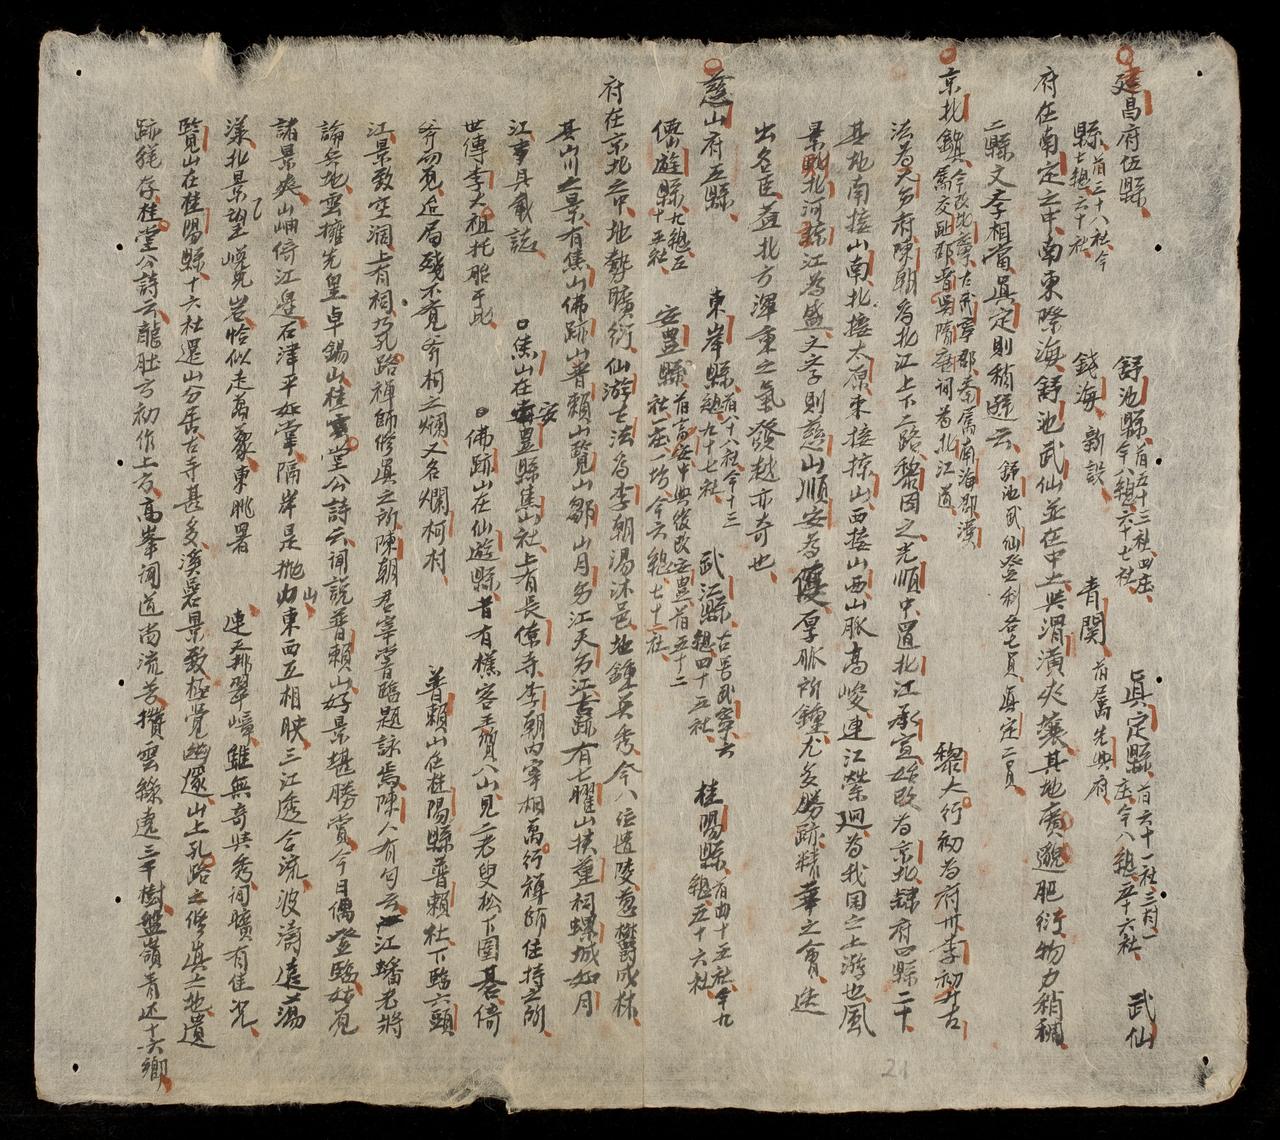 建昌府伍縣 舒池縣 前五十三社四庄今八總六十七社 眞定縣 前六十一社三村一庄今八總五十六社 武仙
縣 前三十八社今七總六十社 錢海 新設 青関 前屬先興府
府在南定之中南東際海舒池武仙並在中土與渭潢火襄其地廣邈肥衍物力稍稠
二縣文李相當眞定則稍遜云 舒池武仙登利各七員眞定二員
京北鎮 今改北寧古武寧郡秦屬南海郡漢屬交趾郡晋吳隋唐詞為北江道 黎大行初為府卅李初為古
法為天府陳朝為北江上下二路黎因之光順中置北江承宣始改為京北隸府四縣二十
其地南接山南北接太原東接掠山西接山西山脈高峻連江縈迴為我国之上游也風
景則北河諒江為盛文字則慈山順安為優厚脈所鍾尤多勝跡精華之會迭
出名臣益北方渾重之氣發越亦奇也
慈山府五縣 東岸縣 前八十八社今十三總九十七社 武江縣 古号武寧六總四十五社 桂陽縣 前四十五社今九總五十六社
僊遊縣 九總五十五社 安豊縣 前安中興後改安豊前五十二社一庄一坊今六總七十二社
府在京北之中地勢曠衍仙游古法為李朝湯沐邑地鍾英秀今八位遺陵蔥欝成林
其山川之景有焦山佛跡山普賴山覽山鄒山月江天江古跡有七曜山扶董祠螺城如月
江事具載誌 焦山在安豊縣焦山社上有長僚寺李朝內宰相萬行禅師住持之所
世傳李太祖托胎于此 佛跡山在仙遊縣昔有樵客王質入山見二老叟松下圍棊倚
斧而覓近局殘不覓斧柯之爛又名爛柯村 普賴山在桂陽縣普賴社下臨六頭
江景致空濶上有祠乃孔路禅師修眞之所陳朝君宰嘗臨題詠焉陳人有句云一江蟠老將
論兵地雲擁先皇卓錫山桂堂公詩云闻說普賴山好景堪勝賞今日偶登臨始覓
諸景爽山岫倚江邊石津平如掌隔岸是抛山東西互相映三江透合流波濤遠蕩
漾北景望嵘先岩恰似走萬象東眺署 連天都翠嶂雖無奇與秀词曠有佳光
覽山在桂陽縣十六社還山分居古寺甚多溪岩景致極覺幽邃山上孔路之修眞之地遺
跡猶存桂堂公詩云龍肚方初作上友高峯闻道尚流芳攢雲絲遶三千樹盤嶺青还十六鄉
21